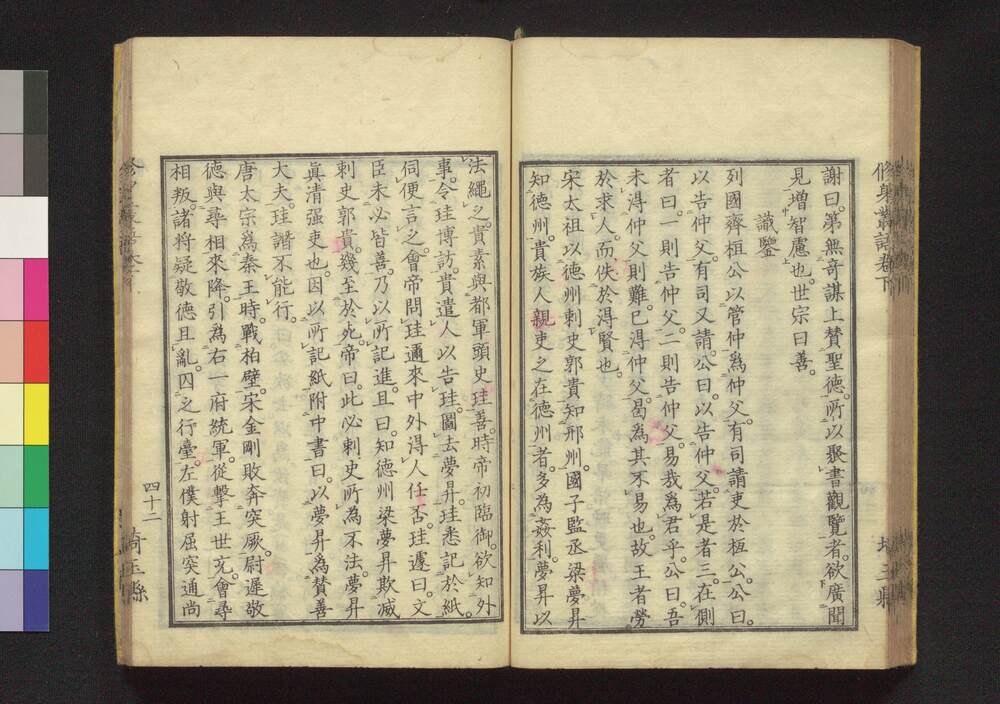 謝曰。第無奇謀上賛聖德。所以聚書觀覽者。欲廣聞
見增智慮也。世宗曰善。
識鑒
列國齊桓公以管仲爲仲父。有司請吏於桓公。公曰。
以告仲父。有司又請。公曰。以告仲父。若是者三。在側
者曰。一則告仲父。二則告仲父。易哉爲君乎。公曰。吾
未得仲父則難。已得仲父。曷為其不易也。故王者勞
於求人。而佚於得賢也。
宋太祖以德州刺史郭貴知邢州。國子監丞梁夢昇
知德州。貴族人親吏之在德州者。多為姦利。夢昇以
法繩之。貴素與都軍頭史珪善。時帝初臨御。欲知外
事。令珪博訪。貴遣人以告珪。圖去夢昇。珪悉記於紙。
伺便言之。會帝問珪邇來中外得人任否。珪遽曰。文
臣未必皆善。乃以所記進。且曰。知德州梁夢昇欺滅
刺史郭貴。幾至於死。帝曰。此必刺史所為不法。夢昇
眞清强吏也。因以所記紙附中書曰。以夢昇為賛善
大夫。珪譖不能行。
唐太宗爲秦王時。戰柏壁。宋金剛敗奔突厥。尉遲敬
德與尋相來降。引為右一府統軍。從擊王世充。會尋
相叛。諸將疑敬德且亂。囚之行臺。左僕射屈突通尚
四十二
埼玉縣